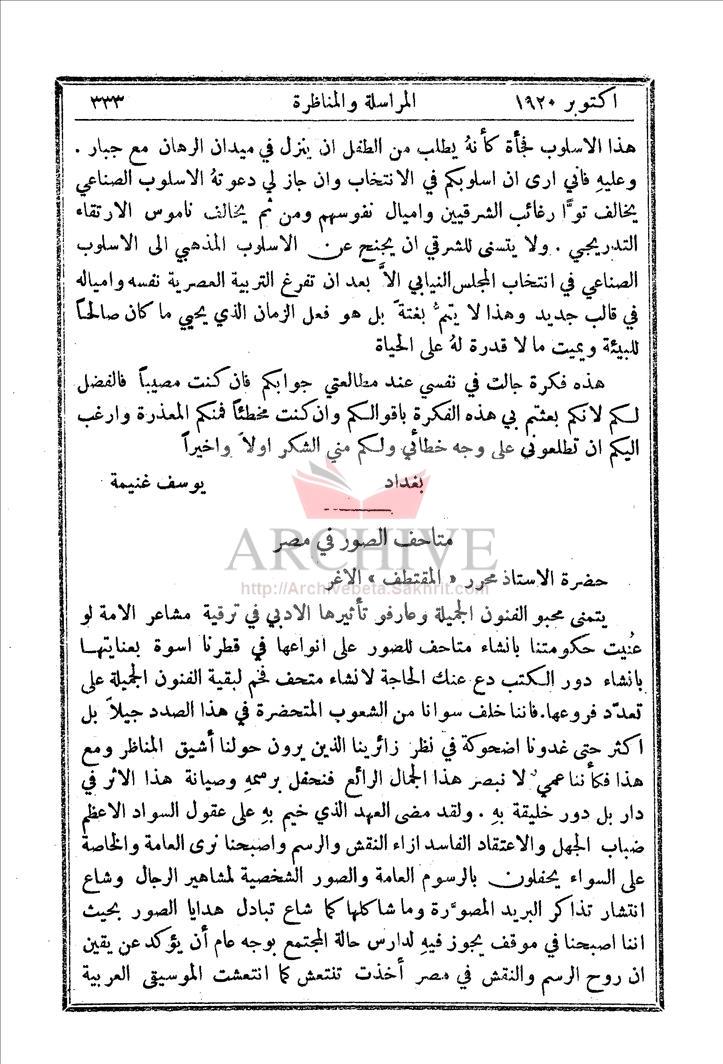 اكتوبر ١٩٢٠ المراسلة والمناظرة ٣٣٣
هذا الاسلوب فجأة كأنهُ يطلب من الطفل ان ينزل في ميدان الرهان مع جبار .
وعليهِ فاني ارى ان اسلوبكم في الانتخاب وان جاز لي دعوتهُ الاسلوب الصناعي
يخالف توًّا رغائب الشرقيين واميال نفوسهم ومن ثم يخالف ناموس الارتقاء
التدريجي . ولا يتسنى للشرقي ان يجنح عن الاسلوب المذهبي الى الاسلوب
الصناعي في انتخاب المجلس النيابي الاَّ بعد ان تفرغ التربية العصرية نفسه وامياله
في قالب جديد وهذا لا يتمُّ بغتةً بل هو فعل الزمان الذي يحيي ما كان صالحاً
للبيئة ويميت ما لا قدرة لهُ على الحياة
هذه فكرة جالت في نفسي عند مطالعتي جوابكم فان كنت مصيباً فالفضل
لكم لانكم بعثتم بي هذه الفكرة باقوالكم وان كنت مخطئاً فمنكم المعذرة وارغب
اليكم ان تطلعوني على وجه خطائي ولكم مني الشكر اولاً واخيراً
بغداد يوسف غنيمة
متاحف الصور في مصر
ARCHIVE
حضرة الاستاذ محرر « المقتطف » الاغر
http://Archivebeta.Sakhrit.com
يتمنى محبو الفنون الجميلة وعارفو تأثيرها الادبي في ترقية مشاعر الامة لو
عُنيت حكومتنا بانشاء متاحف للصور على انواعها في قطرنا اسوة بعنايتها
بانشاء دور الكتب دع عنك الحاجة لانشاء متحف فخم لبقية الفنون الجميلة على
تعدّد فروعها.فاننا خلف سوانا من الشعوب المتحضرة في هذا الصدد جيلاً بل
اكثر حتى غدونا اضحوكة في نظر زائرينا الذين يرون حولنا أشيق المناظر ومع
هذا فكأننا عميٌ لا نبصر هذا الجمال الرائع فنحفل برسمهِ وصيانة هذا الاثر في
دار بل دور خليقة بهِ . ولقد مضى العهد الذي خيم بهِ على عقول السواد الاعظم
ضباب الجهل والاعتقاد الفاسد ازاء النقش والرسم واصبحنا نرى العامة والخاصة
على السواء يحفلون بالرسوم العامة والصور الشخصية لمشاهير الرجال وشاع
انتشار تذاكر البريد المصوَّرة وما شاكلها كما شاع تبادل هدايا الصور بحيث
اننا اصبحنا في موقف يجوز فيهِ لدارس حالة المجتمع بوجه عام أن يؤكد عن يقين
ان روح الرسم والنقش في مصر أخذت تنتعش كما انتعشت الموسيقى العربية